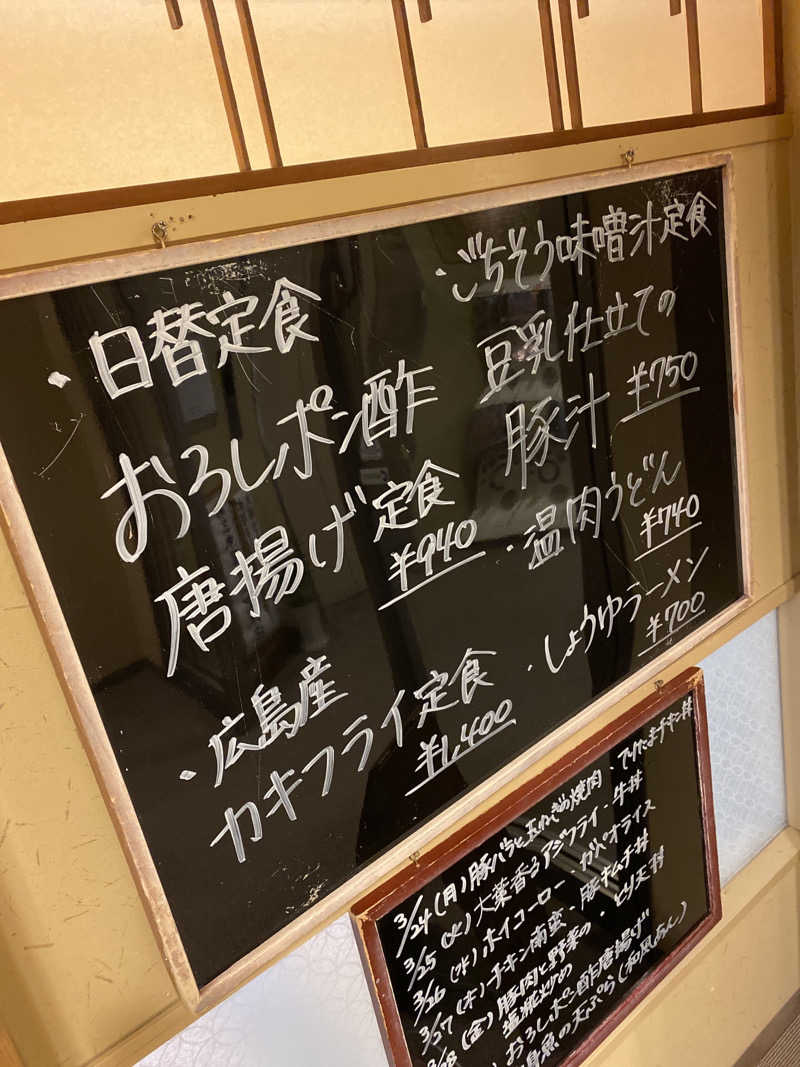 ・日替定食
おろしポン酢
唐揚げ定食
¥940
・広島産
カキフライ定食
¥1,400
・ごちそう味噌汁定食
豆乳仕立ての
豚汁 ¥750
・温肉うどん
¥740
・しょうゆラーメン
¥700
3/24 (月) 豚バラと玉ねぎの焼肉・てりたまチキン丼
3/25 (火) 大葉香るアジフライ・牛丼
3/26 (水) ホイコーロー ガパオライス
3/27 (木) チキン南蛮・豚キムチ丼
(金) 豚肉と野菜の・とり天丼
塩糀炒め
おろしポン酢唐揚げ
身魚の天ぷら(和風あん)